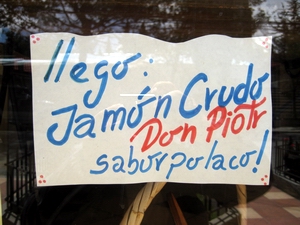 llego:
Jamón Crudo
Don Piotr
sabor polaco!